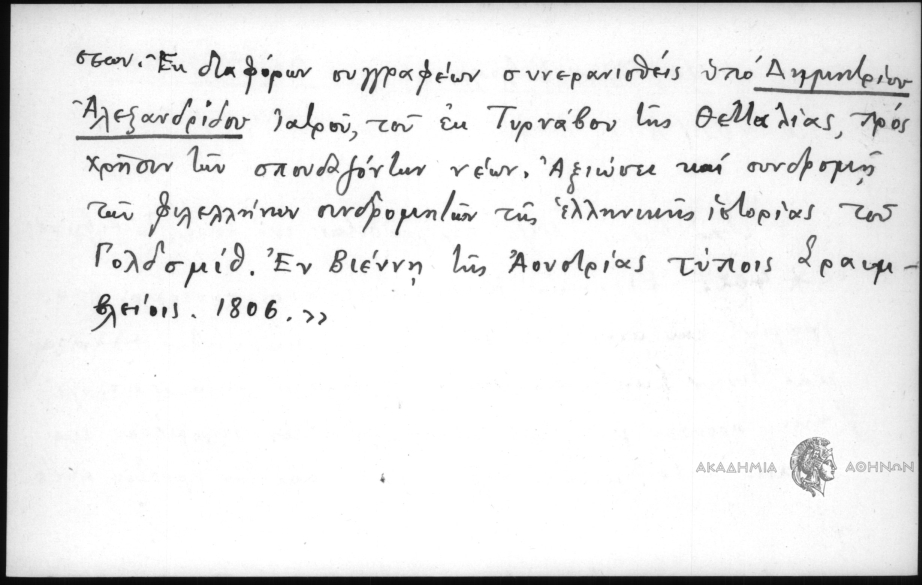 σεων. Ἐκ διαφόρων συγγραφέων συνερανισθεὶς ὑπὸ Δημητρίου
Ἀλεξανδρίδου Ἰατροῦ, τοῦ ἐκ Τυρνάβου τῆς Θετταλίας, πρὸς
χρῆσιν τῶν σπουδαζόντων νέων. Ἀξιώσει καὶ συνδρομῇ
τῶν φιλελλήνων συνδρομητῶν τῆς ἑλληνικῆς ἱστορίας τοῦ
Γολδσμίθ. Ἐν Βιέννῃ τῆς Ἀουστρίας τύποις Σραιμ-
βλείοις. 1806.»
ΑΚΑΔΗΜΙΑ ΑΘΗΝΩΝ